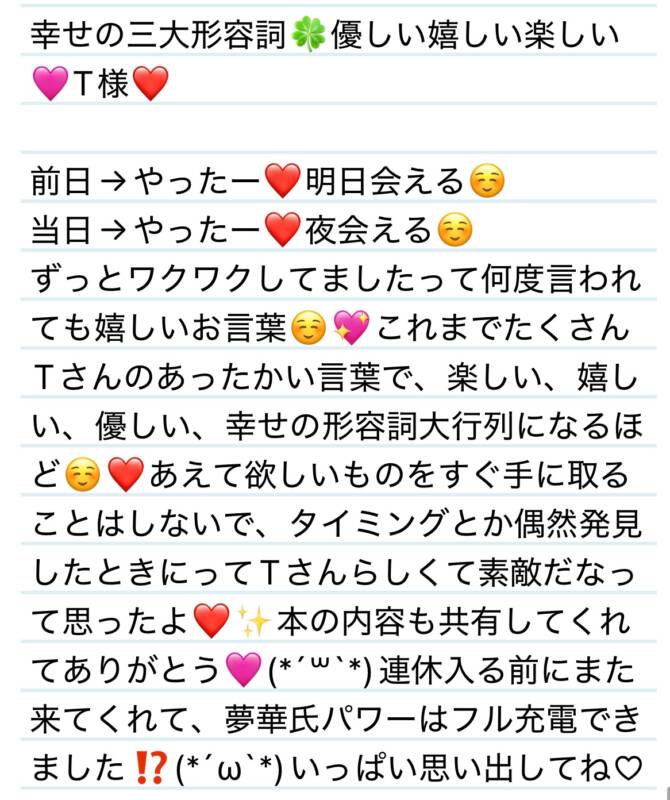 幸せの三大形容詞🍀優しい嬉しい楽しい
💗T様❤️
前日→やったー❤️明日会える☺️
当日→やったー❤️夜会える☺️
ずっとワクワクしてましたって何度言われ
ても嬉しいお言葉☺️💖これまでたくさん
Tさんのあったかい言葉で、楽しい、嬉し
い、優しい、幸せの形容詞大行列になるほ
ど☺️❤️あえて欲しいものをすぐ手に取る
ことはしないで、タイミングとか偶然発見
したときにってTさんらしくて素敵だなっ
て思ったよ❤️✨本の内容も共有してくれ
てありがとう💗(*´꒳`*)連休入る前にまた
来てくれて、夢華氏パワーはフル充電でき
ました⁉️(*´ω`*)いっぱい思い出してね♡